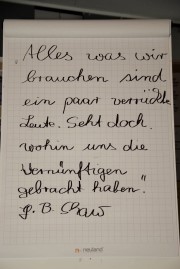 „Alles was wir
brauchen sind
ein paar verrückte
Leute. Seht doch
wohin uns die
Vernünftigen
gebracht haben."
G. B. Shaw